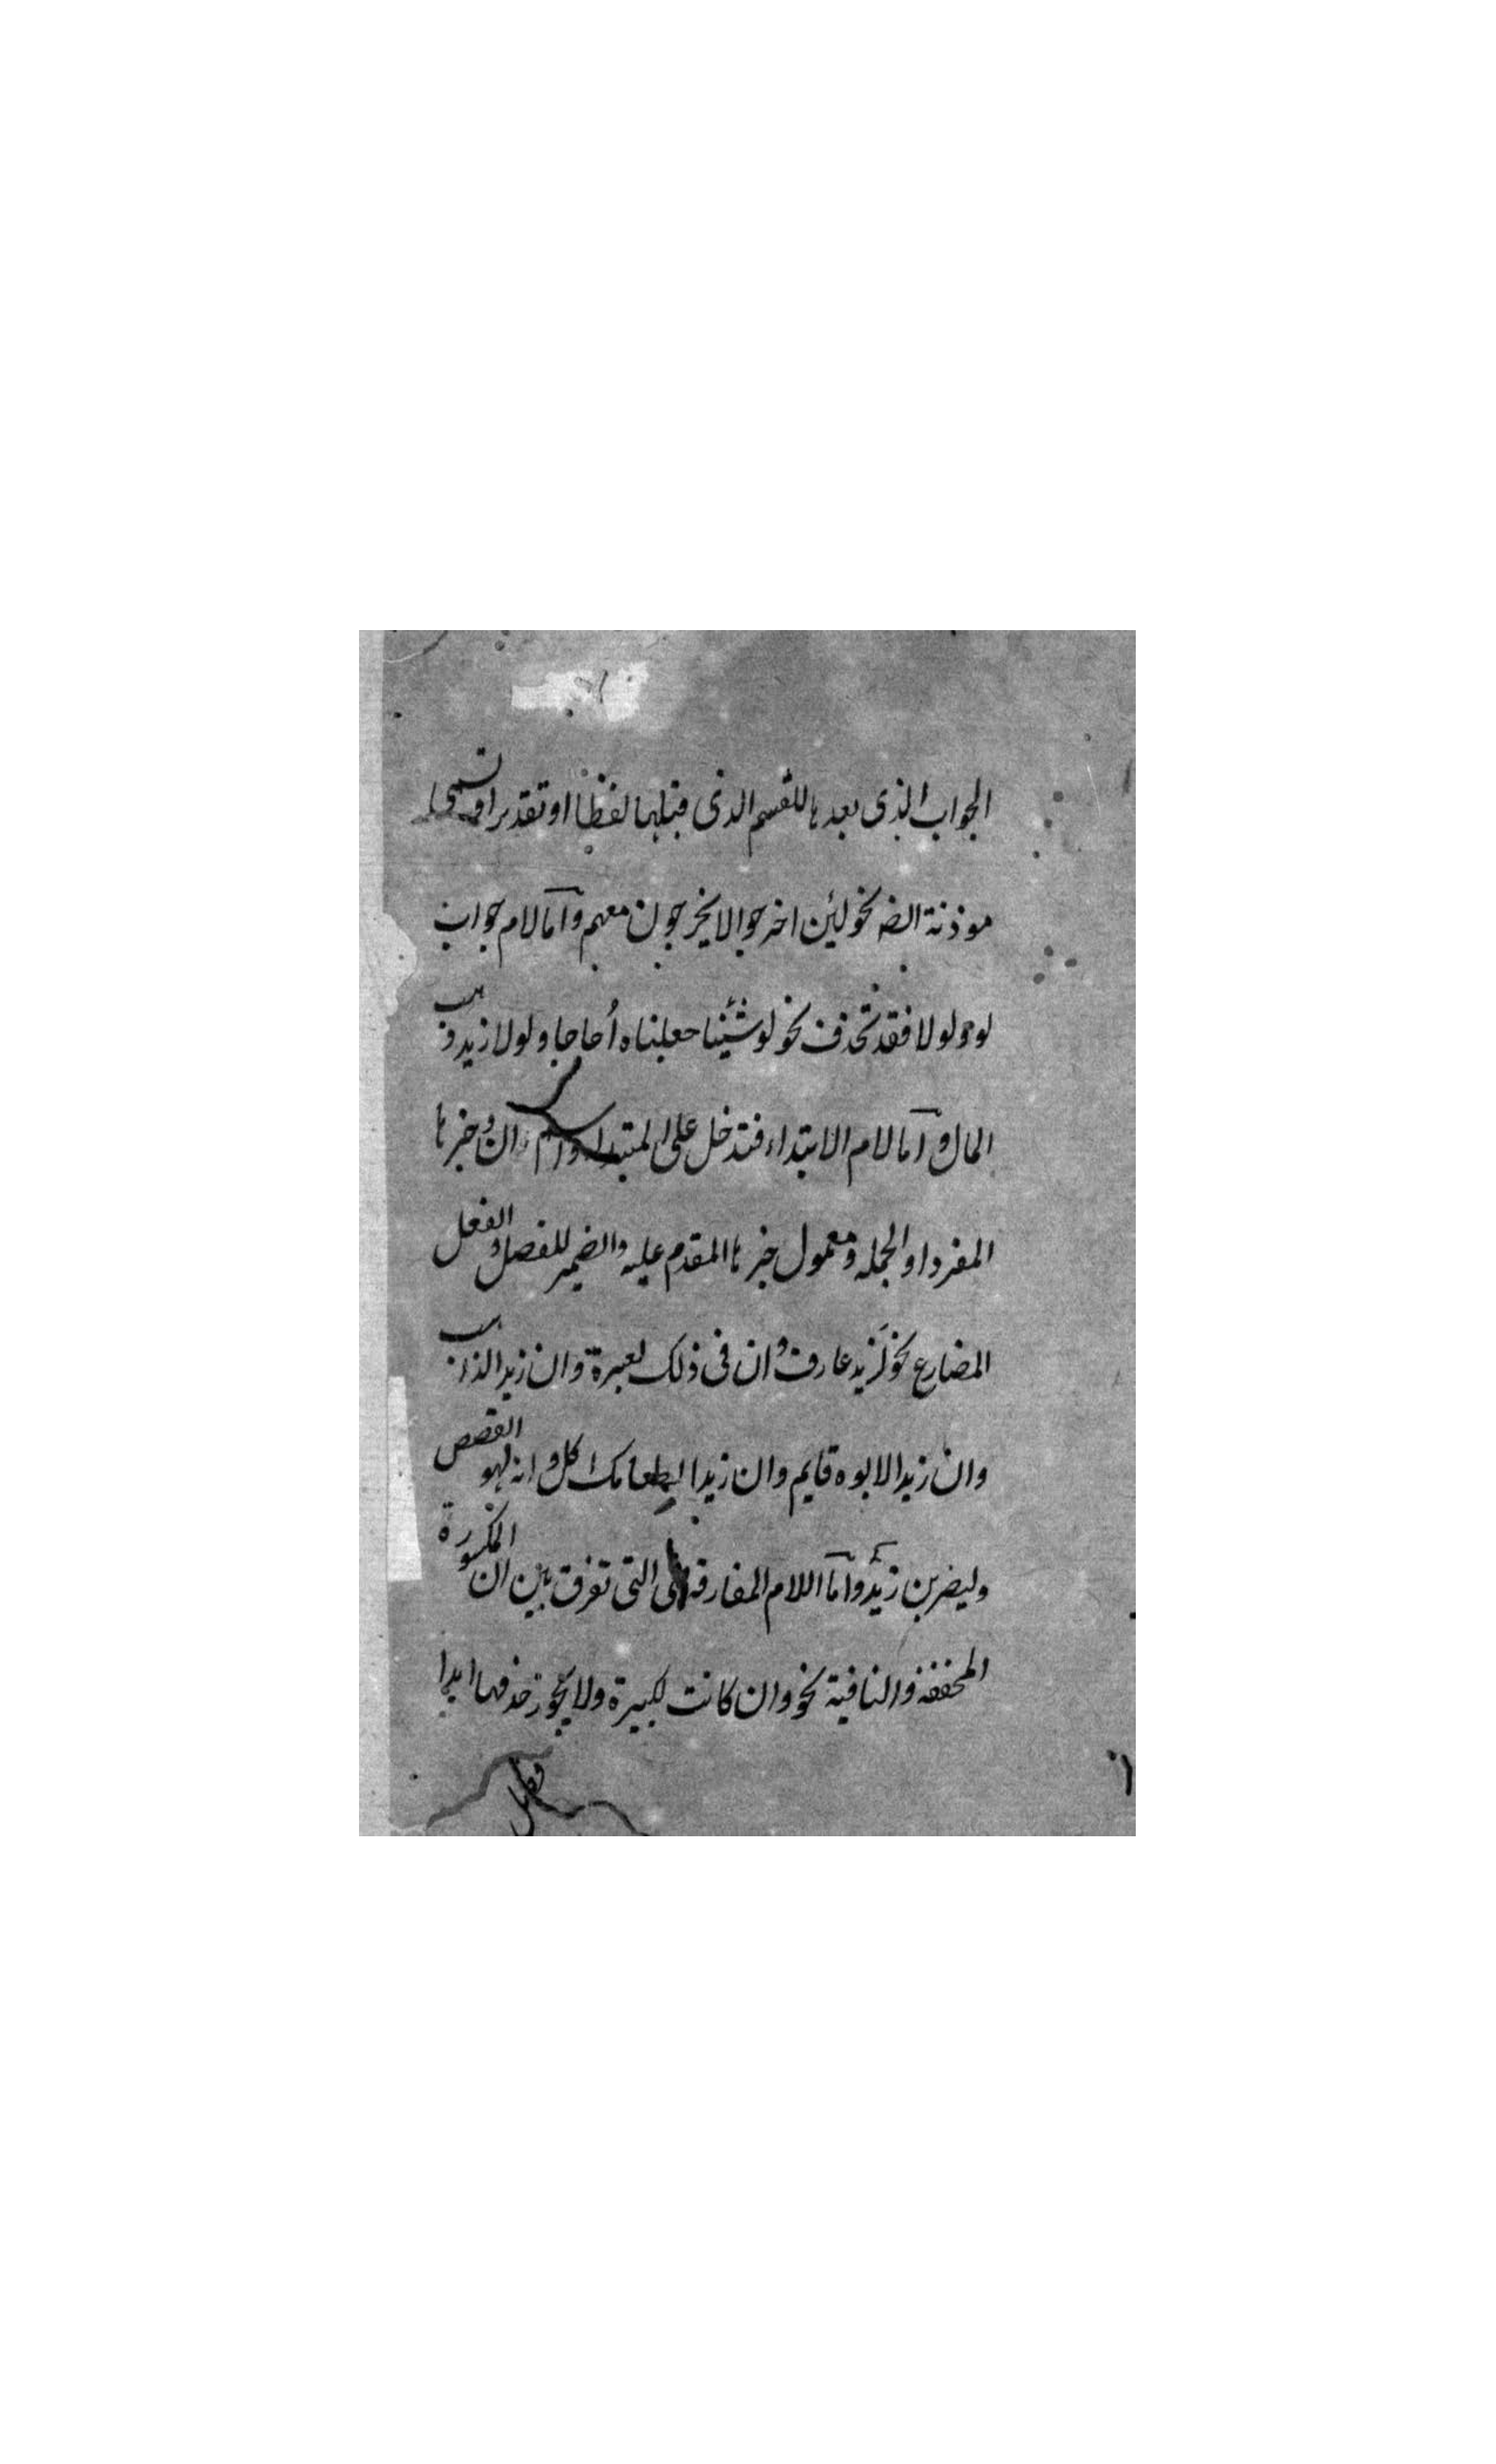 الجواب الذى بعدها للقسم الذى قبلها لفظا او تقديرا وتسمى
موذنة ايضه نحو لئن اخرجوا لا يخرجون معهم واما لام جواب
لو ولولا فقد تحذف نحو لو شئنا جعلناه أجاجا ولولا زيد ذهب
المال واما لام الابتداء فتدخل على المبتداء واسم ان وخبرها
المفرد او الجمله ومعمول خبرها المقدم عليه والضمير للفصل والفعل
المضارع نحو لَزيد عارف وان فى ذلك لعبرة وان زيدا لذاهب
وان زيدا لابوه قايم وان زيدا لطعامك اكل وانه لهو القصص
وليضربن زيد واما اللام الفارقة فهى التى تفرق بين ان المكسورة
المخففه والنافية نحو وان كانت لكبيرة ولا يجوز حذفها ابدا
فصل